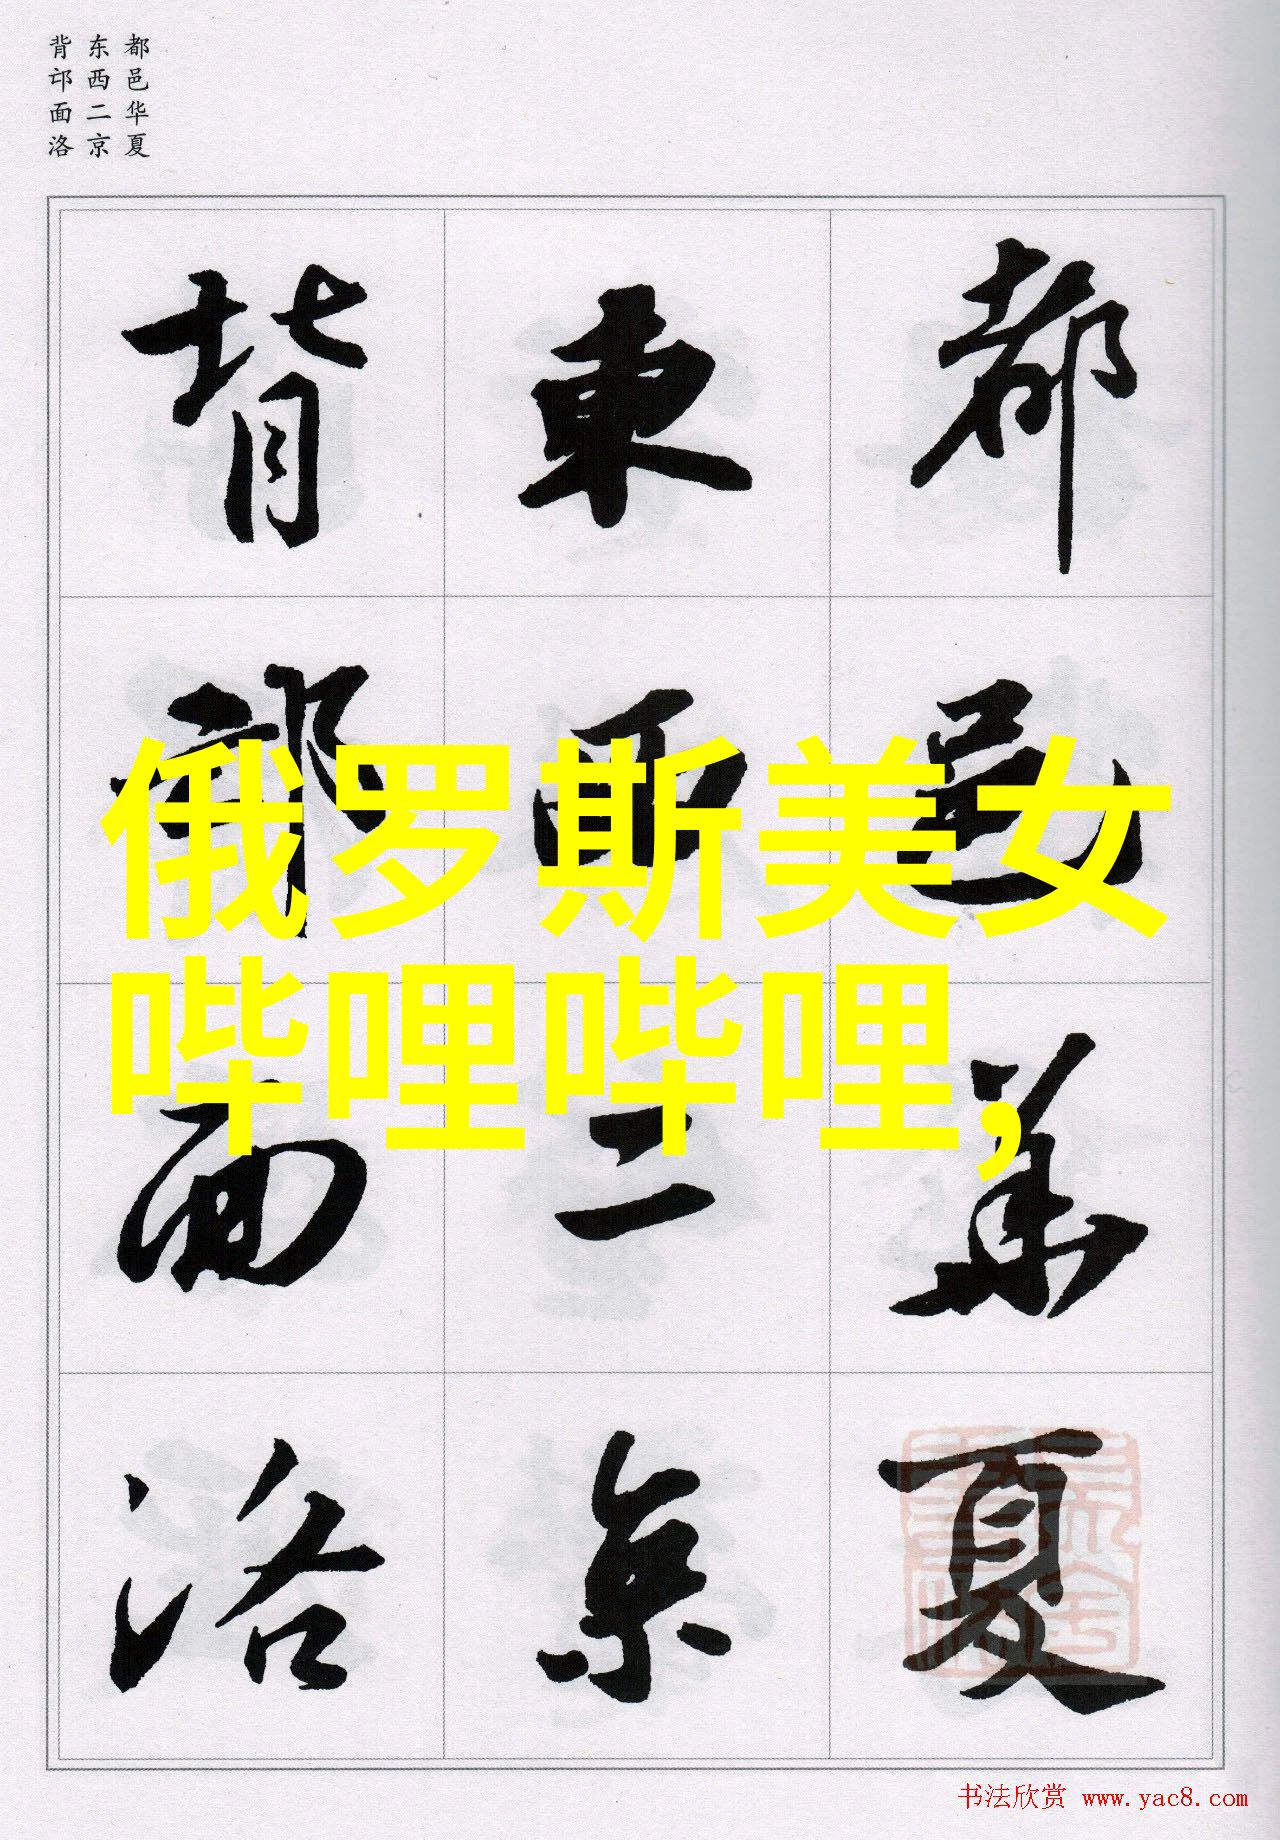 都邑华夏
东西二京
背邙面洛
都邑華夏
東西二京
背邙面洛
俄罗斯美女
哔哩哔哩,
书法欣赏 www.yac8.com